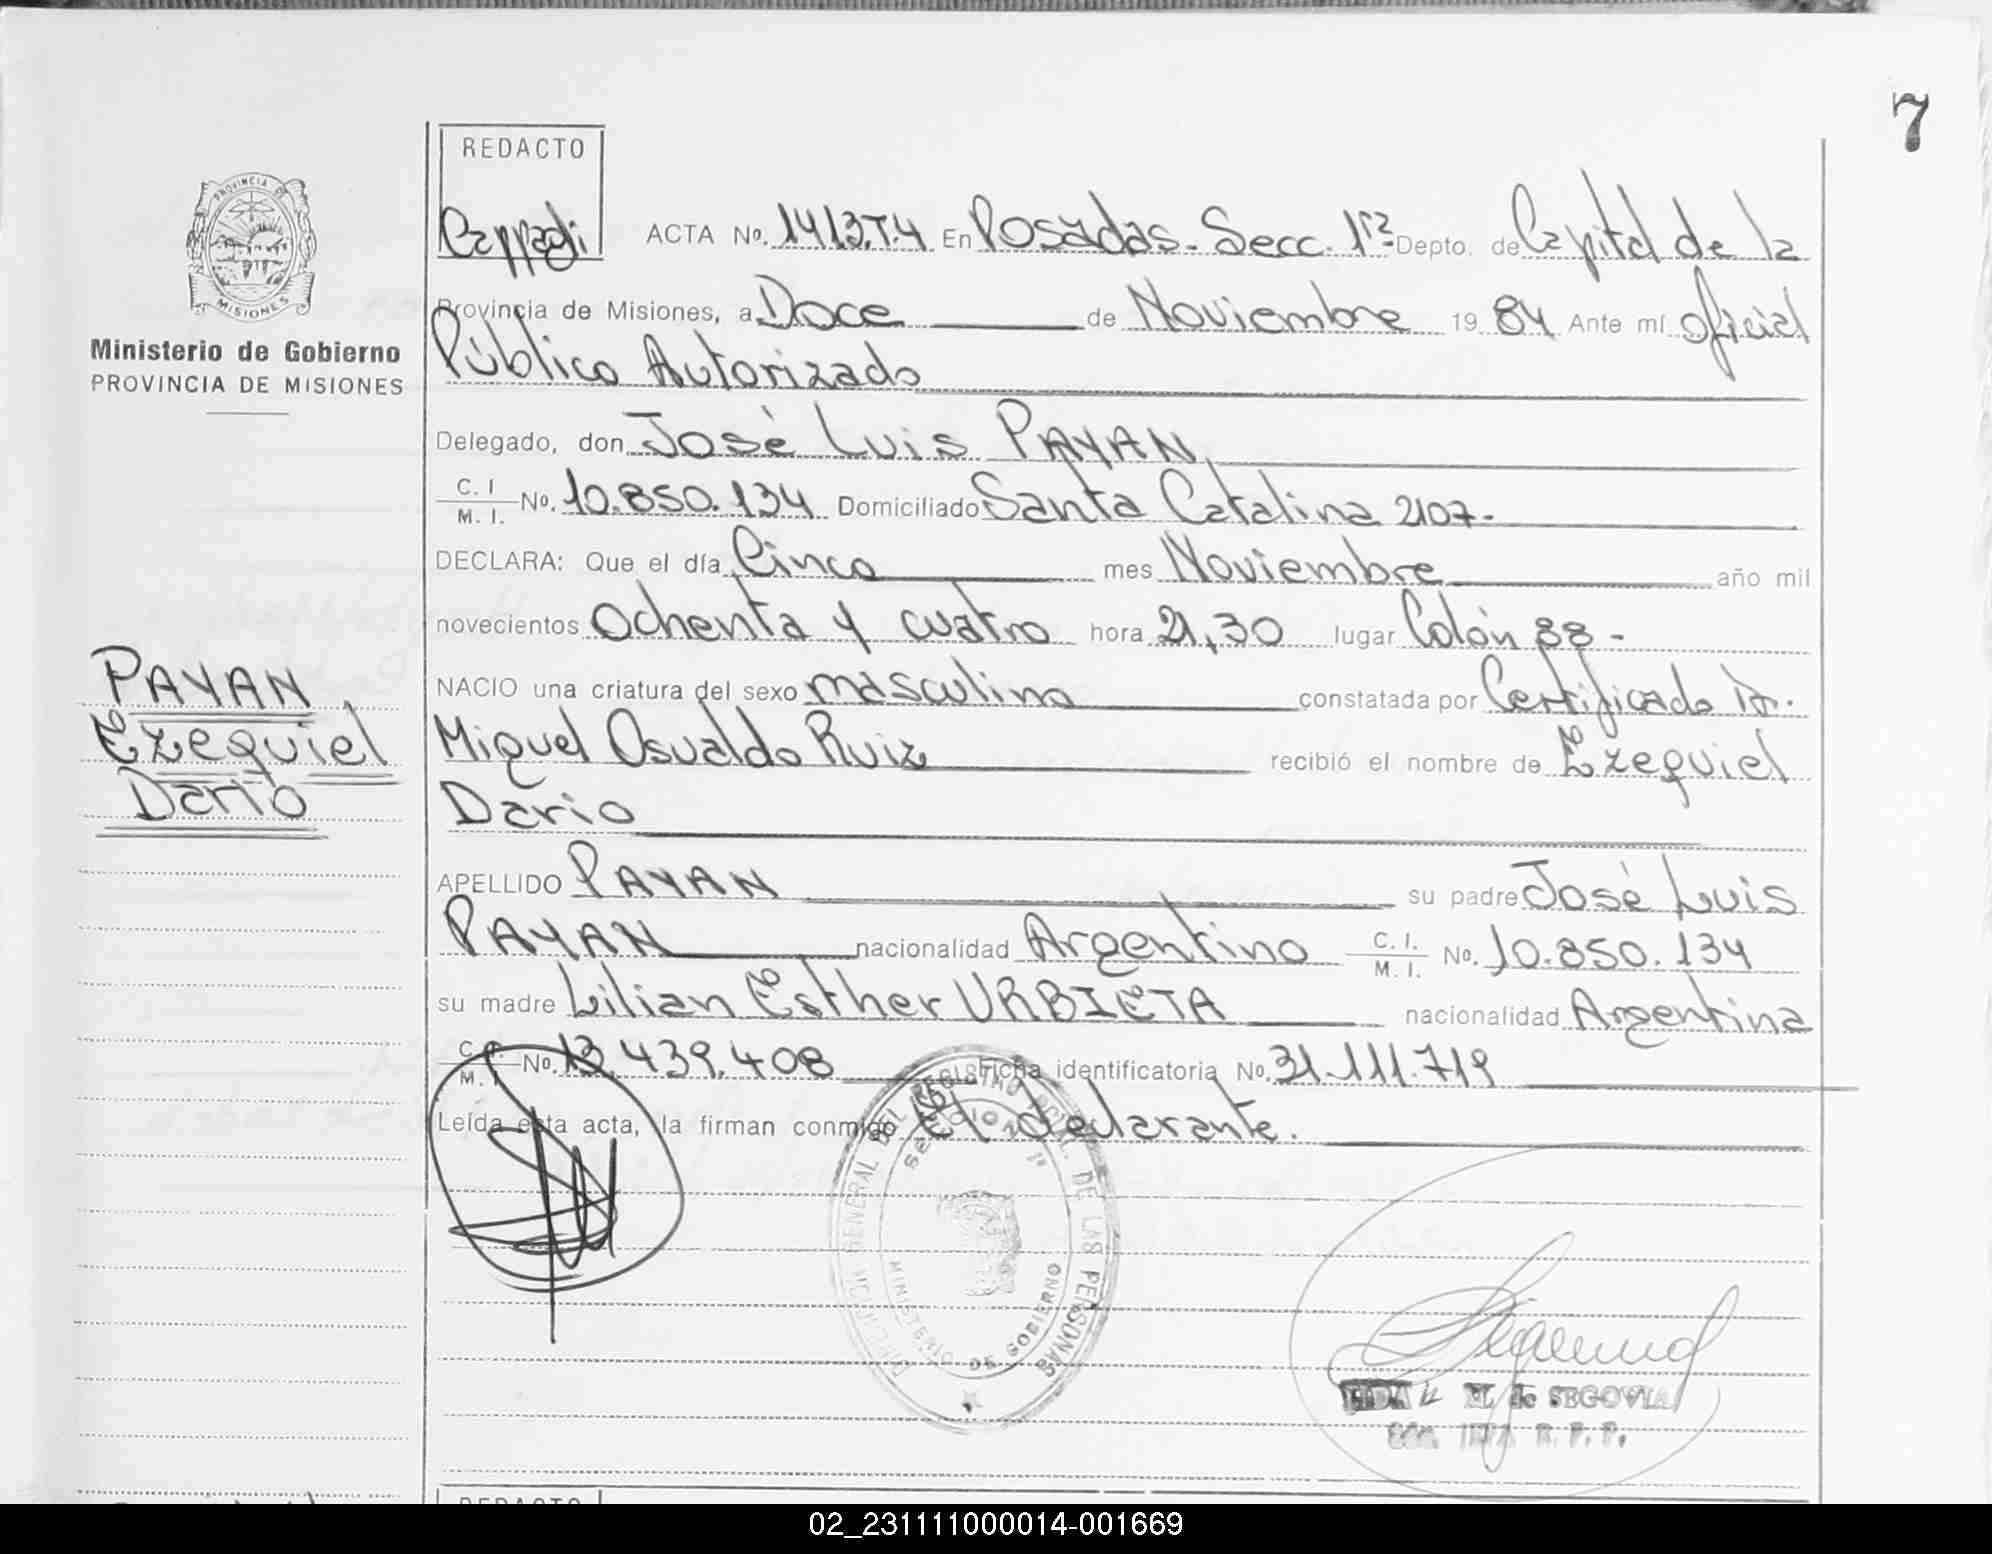 7
REDACTO
PROVINCIA DE
MISIONES
ACTA Nº. 1413.T.4 En Posadas. Secc. 1ra Depto. de Capital de la
Provincia de Misiones, a Doce de Noviembre 19 84 Ante mí oficial
Ministerio de Gobierno
PROVINCIA DE MISIONES
Público Autorizado
Delegado, don José Luis PAYAN,
C. I. M. I. No. 10.850.134 Domiciliado Santa Catalina 2107-
DECLARA: Que el día Cinco mes Noviembre año mil
novecientos Ochenta y cuatro hora 21,30 lugar Colón 88-
PAYAN
Ezequiel
Dario
NACIO una criatura del sexo masculino constatada por Certificado Dr.
Miguel Osvaldo Ruiz recibió el nombre de Ezequiel
Dario
APELLIDO PAYAN su padre José Luis
PAYAN nacionalidad Argentino C. I. M. I. No. 10.850.134
su madre Lilian Esther URBIETA nacionalidad Argentina
C. I. M. I. No. 13.439.408 Ficha identificatoria No. 31.111.719
Leída esta acta, la firman conmigo El declarante.
DIRECCION GENERAL DEL REGISTRO PCIAL. DE LAS PERSONAS
SECCION 1ª
MINISTERIO DE GOBIERNO
de SEGOVIA
R. P. P.
REDACTO
02_231111000014-001669